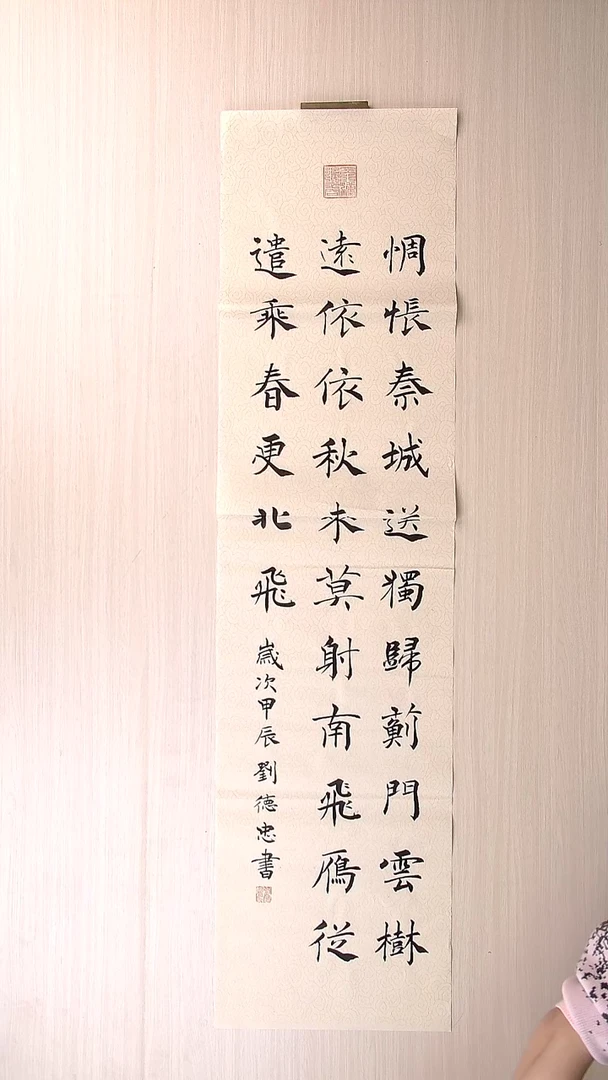 惆悵秦城送獨歸薊門雲樹
遠依依秋来莫射南飛鴈從
遣乘春更北飛
歲次甲辰劉德忠書